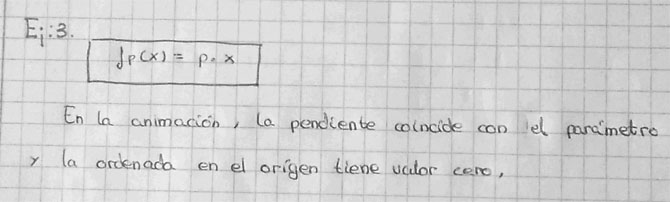 Ej:3.
fp(x) = p. x
En la animación, la pendiente coincide con el parámetro
y la ordenada en el orígen tiene valor cero.